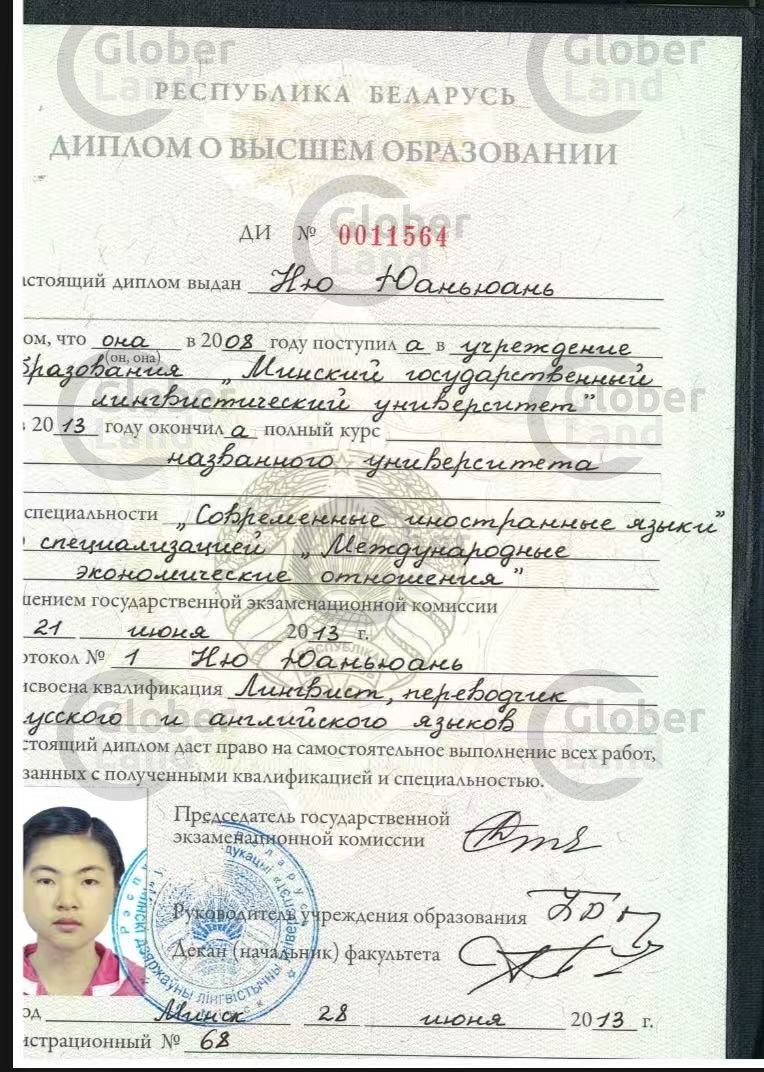 РЕСПУБЛИКА БЕЛАРУСЬ
ДИПЛОМ О ВЫСШЕМ ОБРАЗОВАНИИ
ДИ № 0011564
астоящий диплом выдан Ню Юаньюань
ом, что она в 2008 году поступила в учреждение
(он, она)
бразования „Минский государственный
лингвистический университет”
в 2013 году окончила полный курс
названного университета
специальности „Современные иностранные языки”
специализацией „Международные
экономические отношения”
шением государственной экзаменационной комиссии
21 июня 2013 г.
отокол № 1 Ню Юаньюань
исвоена квалификация Лингвист, переводчик
усского и английского языков
стоящий диплом дает право на самостоятельное выполнение всех работ,
занных с полученными квалификацией и специальностью.
Председатель государственной
экзаменационной комиссии
Руководитель учреждения образования
Декан (начальник) факультета
од Минск 28 июня 2013 г.
истрационный № 68
Glober Land